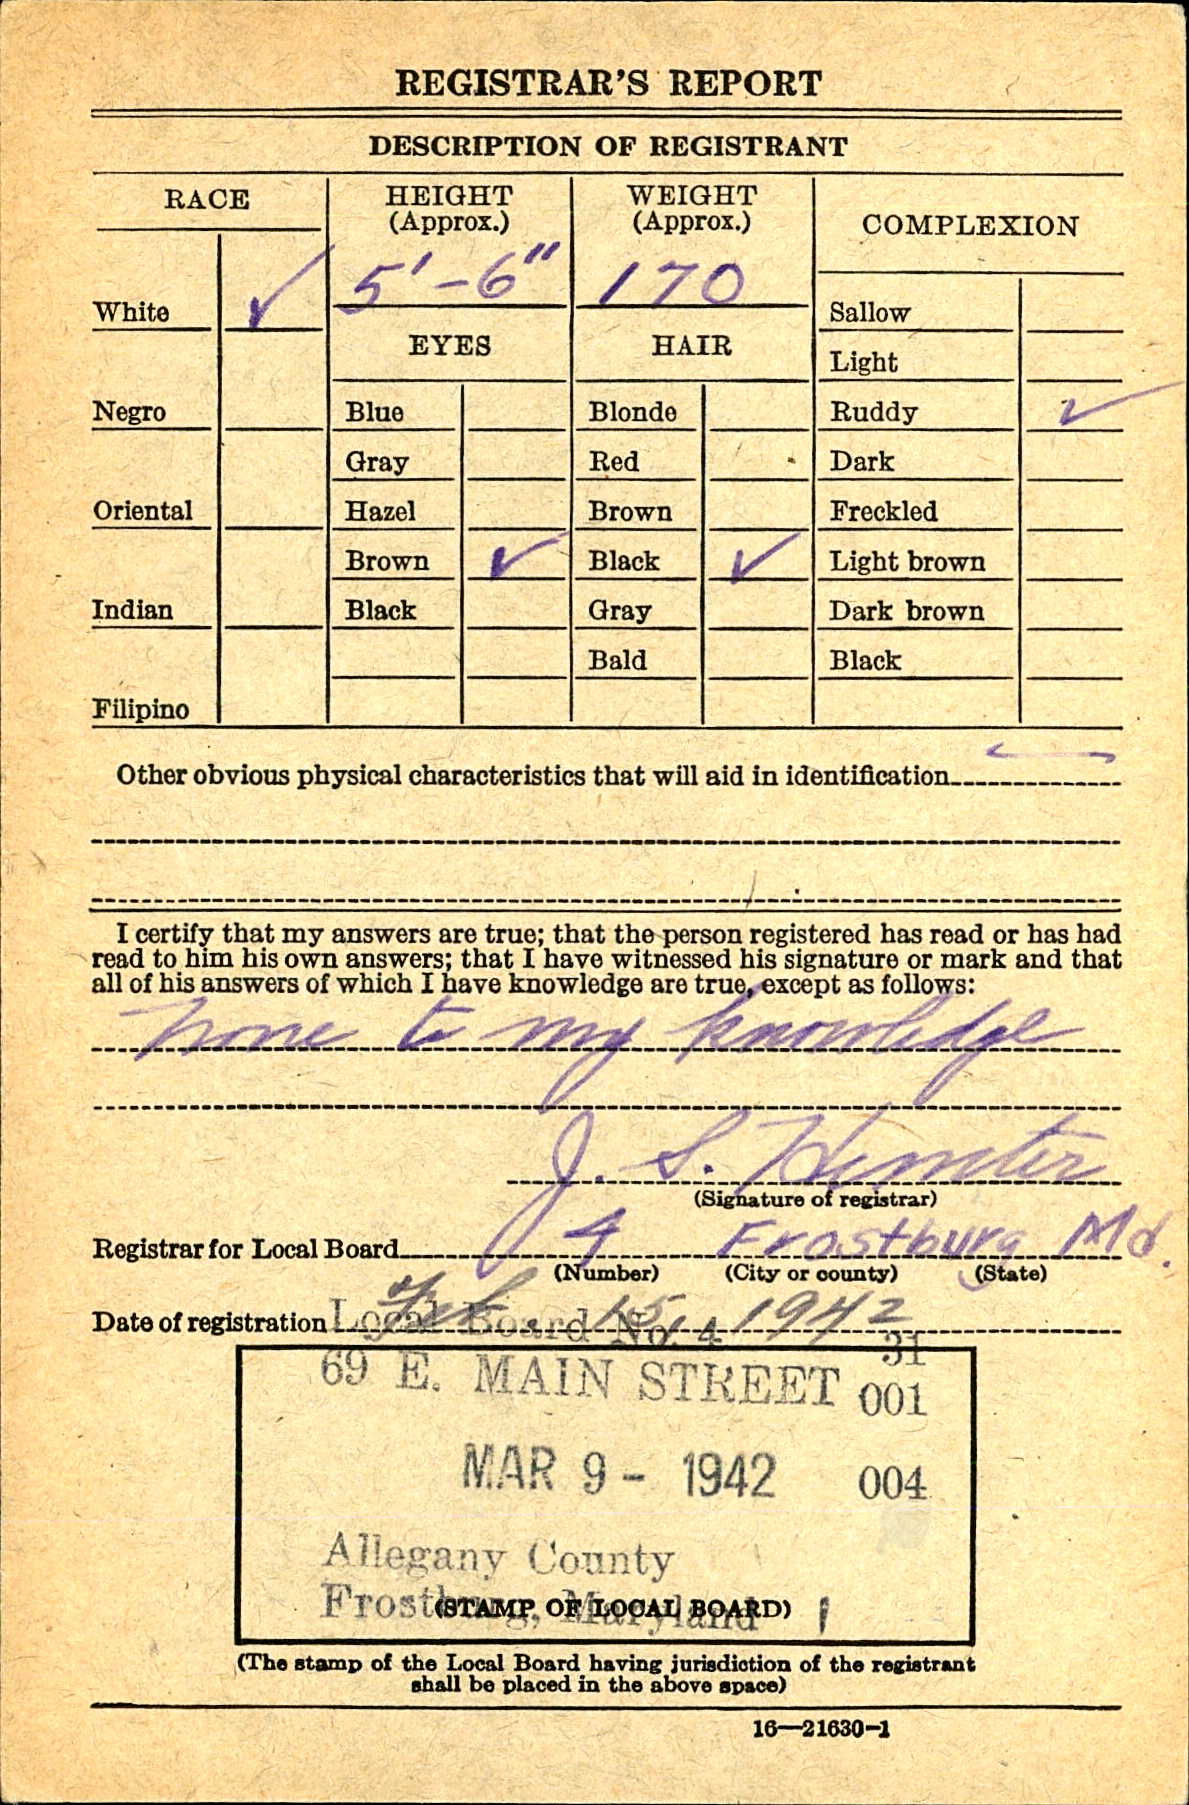 REGISTRAR'S REPORT
DESCRIPTION OF REGISTRANT
RACE
HEIGHT
(Approx.)
WEIGHT
(Approx.)
COMPLEXION
5'-6" 170
White ✓
Sallow
EYES HAIR
Light
Negro Blue Blonde Ruddy ✓
Gray Red Dark
Oriental Hazel Brown Freckled
Brown ✓ Black ✓ Light brown
Indian Black Gray Dark brown
Bald Black
Filipino
Other obvious physical characteristics that will aid in identification
I certify that my answers are true; that the person registered has read or has had
read to him his own answers; that I have witnessed his signature or mark and that
all of his answers of which I have knowledge are true, except as follows:
None to my knowledge
J. S.
(Signature of registrar)
Registrar for Local Board 4 Frostburg Md.
(Number) (City or county) (State)
Date of registration Feb. 15, 1942
Local Board No. 4
31
69 E. MAIN STREET 001
MAR 9 - 1942 004
Allegany County
Frostburg, Maryland
(STAMP OF LOCAL BOARD)
(The stamp of the Local Board having jurisdiction of the registrant
shall be placed in the above space)
16—21630-1